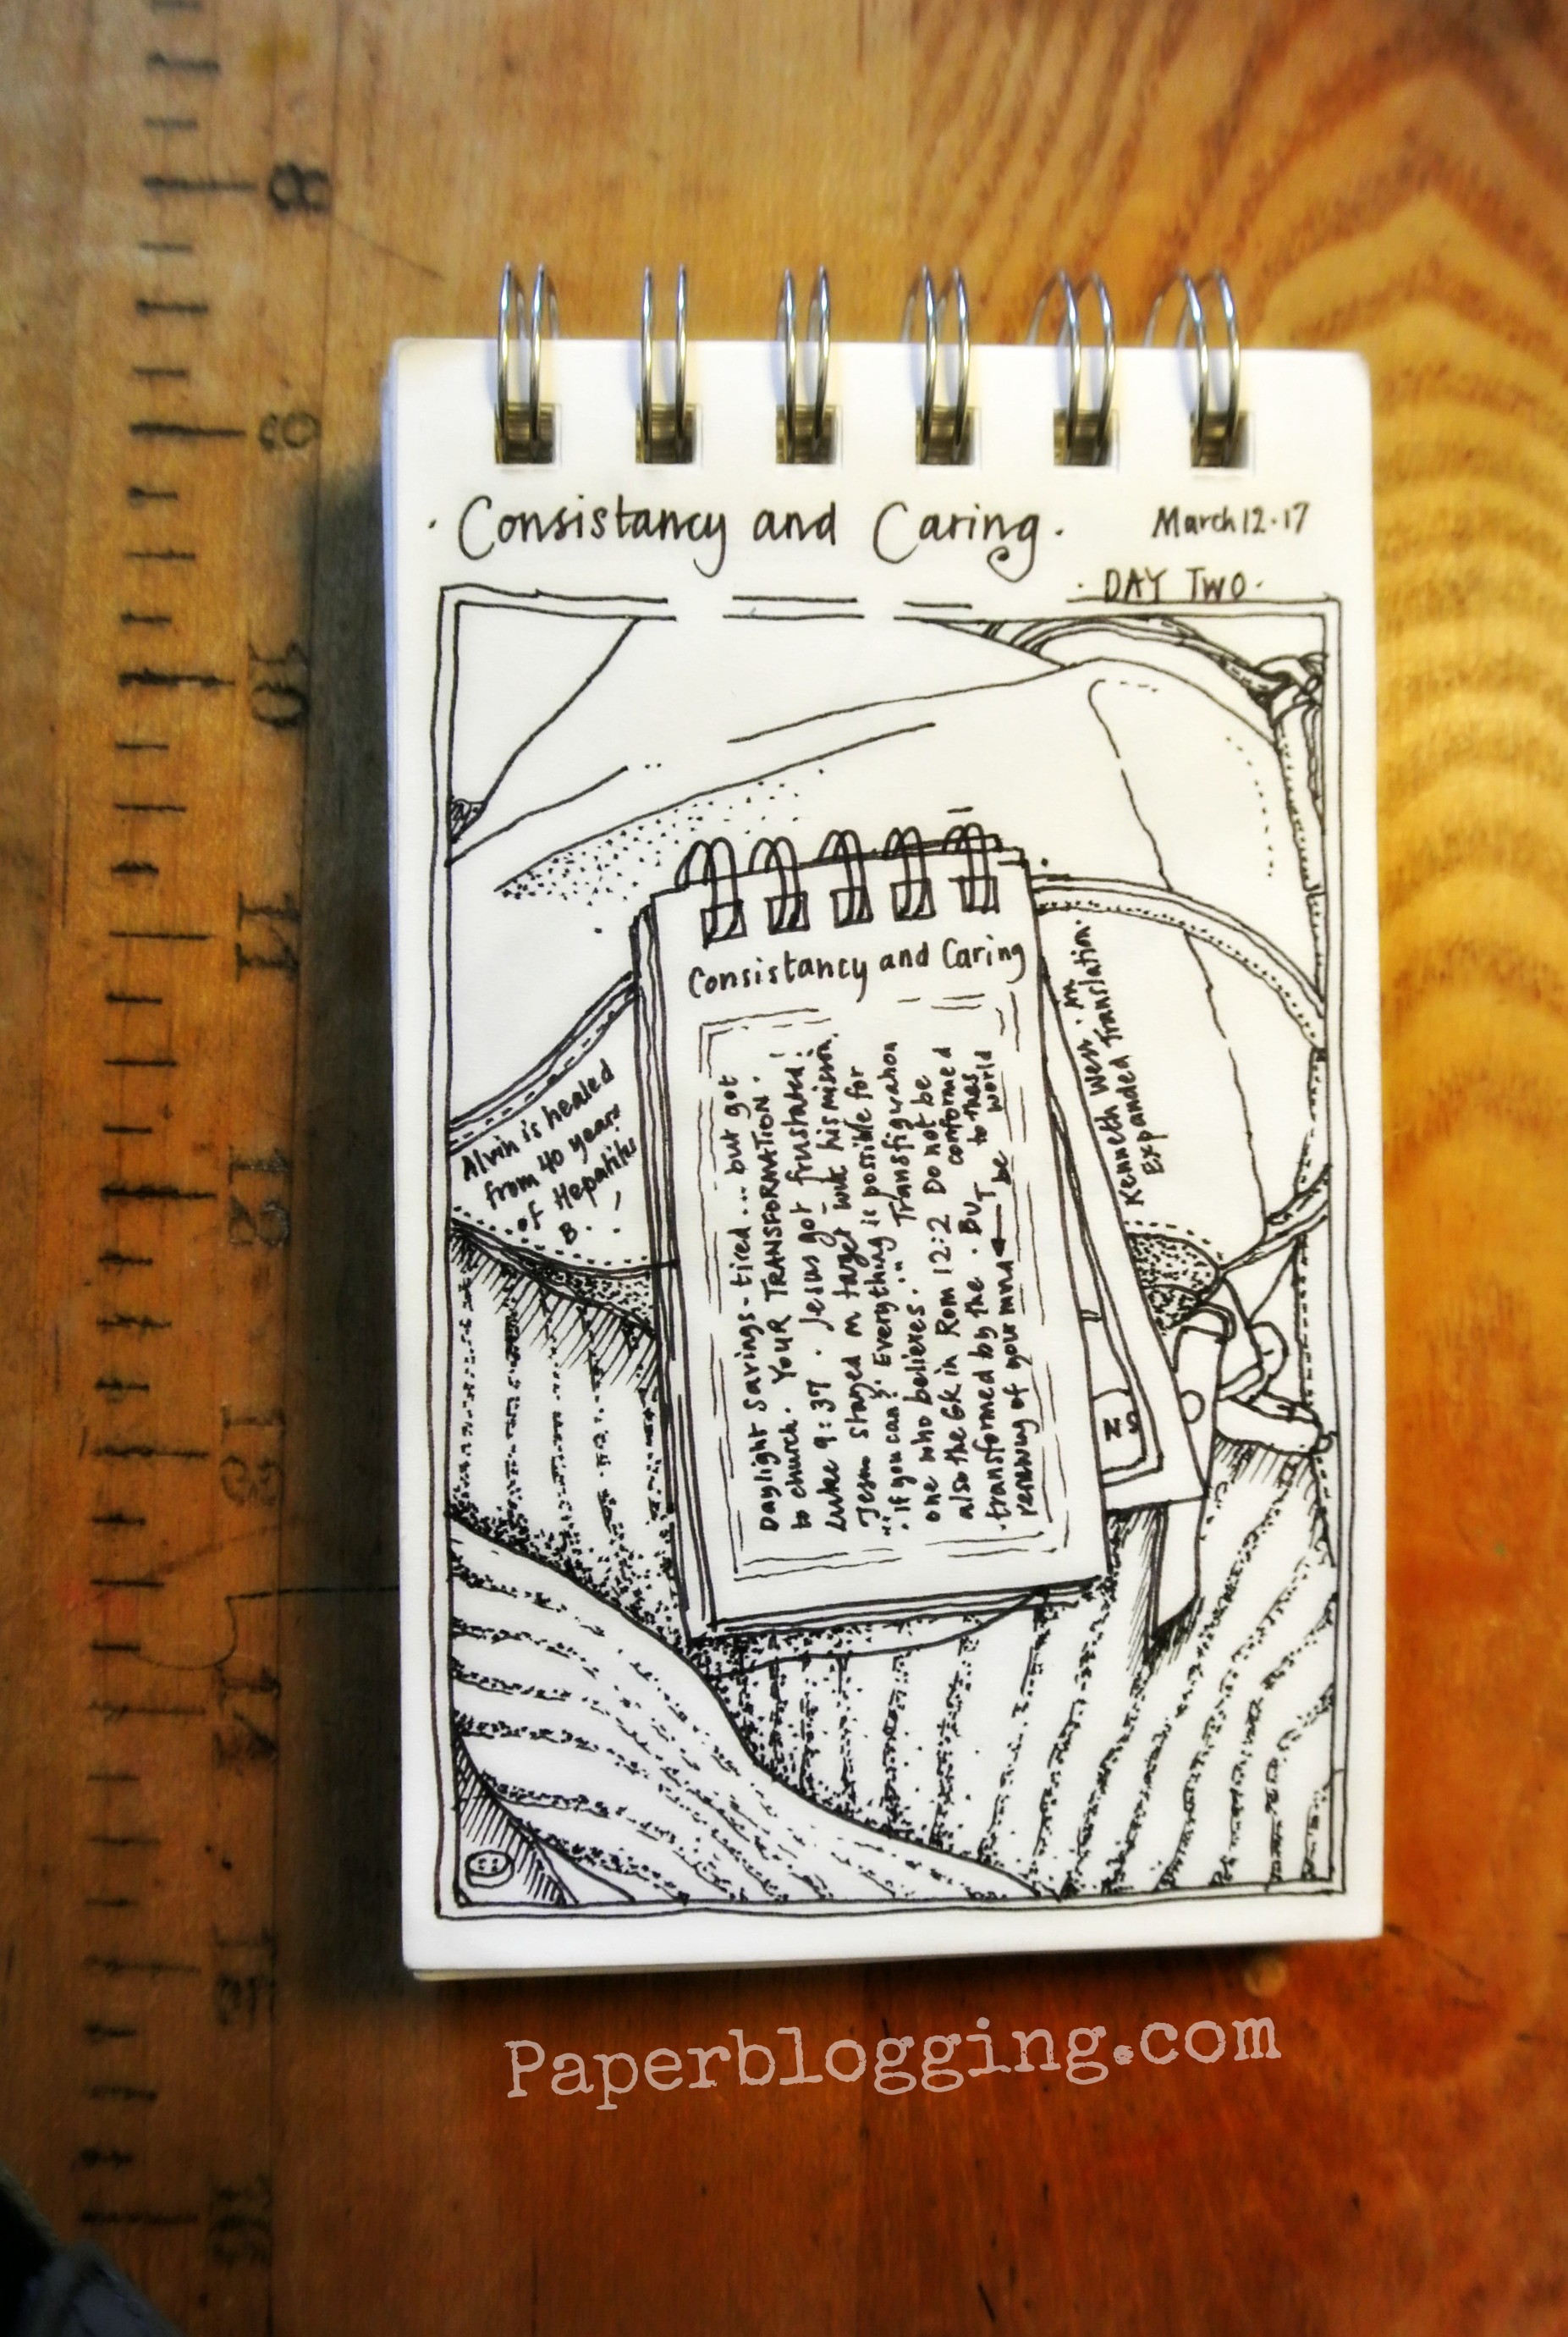 8
9
10
11
12
13
14
15
16
· Consistancy and Caring ·
March 12 · 17
· DAY TWO ·
Consistancy and Caring
Daylight Savings - tired ... but got
to church. YOUR TRANSFORMATION.
Luke 9:37 . Jesus got frustated!
Jesus stayed on target with his mission.
"If you can? Everything is possible for
one who believes." Transfiguration
also the GK in Rom 12:2 Do not be conformed
transformed by the . BUT to this
renewing of your mind be world
Alvin is healed
from 40 years
of Hepatitus
B.
Kenneth West. An
Expanded Translation
Paperblogging.com